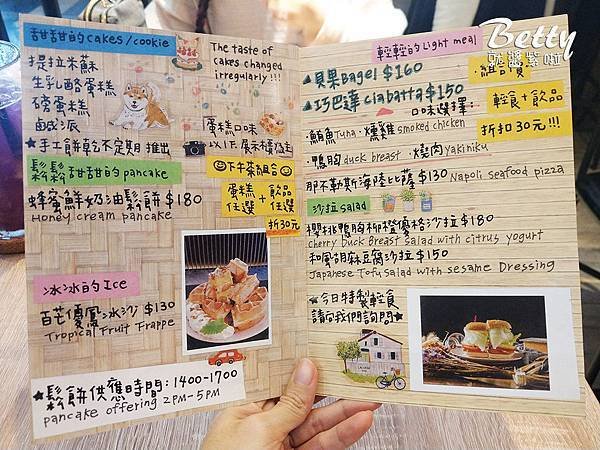 甜甜的cakes/cookie
提拉米蘇
生乳酪蛋糕
磅蛋糕
鹹派
★手工餅乾不定期推出
The taste of
cakes changed
irregularly!!!
蛋糕口味
以1F展示櫃為主
鬆鬆甜甜的pancake
蜂蜜鮮奶油鬆餅$180
Honey cream pancake
☺下午茶組合☺
蛋糕任選+飲品任選
折30元
冰冰的Ice
百芒優風冰沙$130
Tropical Fruit Frappe
★鬆餅供應時間:1400-1700
pancake offering 2PM-5PM
Betty
就醬紫啦
輕輕的Light meal
▲貝果Bagel $160
▲巧巴達ciabatta $150
·組合價·
輕食+飲品
折扣30元!!!
口味選擇:
·鮪魚Tuna·燻雞smoked chicken
·鴨胸duck breast·燒肉yakiniku
那不勒斯海陸比薩$130 Napoli seafood pizza
沙拉salad
櫻桃鴨胸柳橙優格沙拉$180
cherry Duck Breast Salad with citrus yogurt
和風胡麻豆腐沙拉$150
Japanese Tofu Salad with sesame Dressing
★今日特製輕食
請向我們詢問★